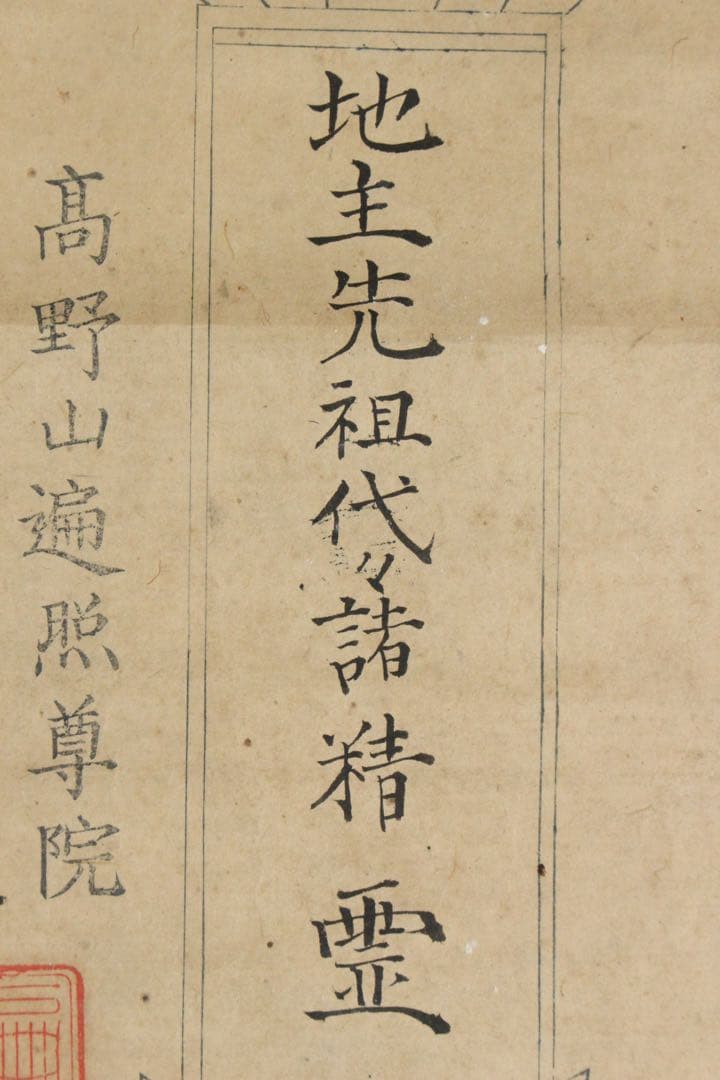 地主先祖代々諸精霊
高野山遍照尊院